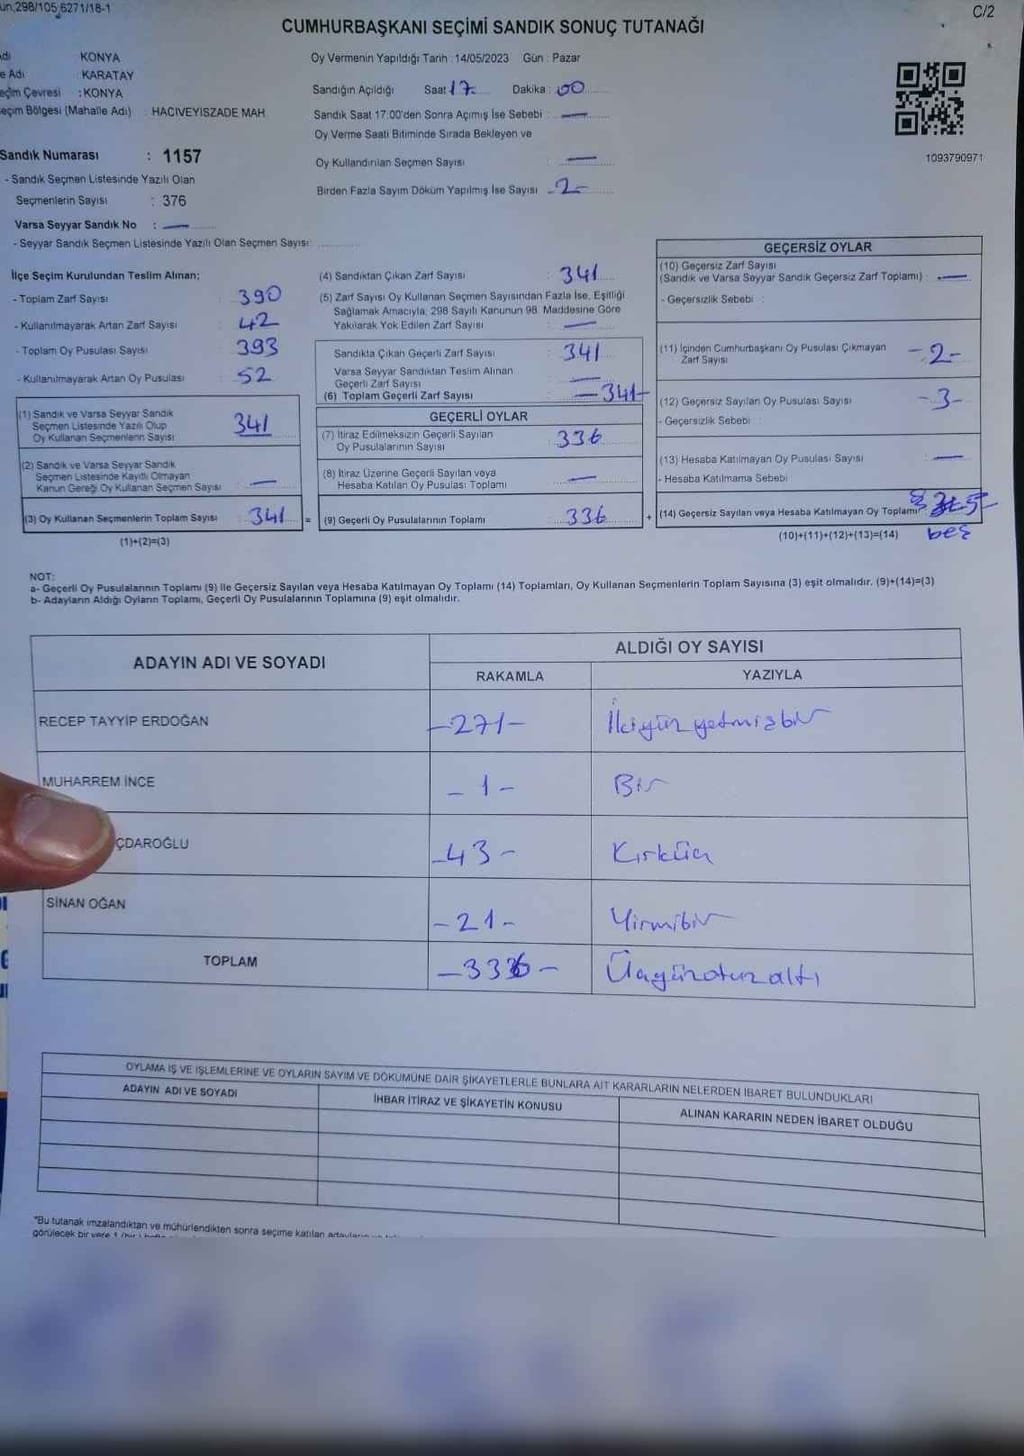 un,298/105,6271/18-1
C/2
CUMHURBAŞKANI SEÇİMİ SANDIK SONUÇ TUTANAĞI
dı KONYA
e Adı : KARATAY
eçim Çevresi : KONYA
eçim Bölgesi (Mahalle Adı) HACIVEYISZADE MAH
Sandık Numarası : 1157
- Sandık Seçmen Listesinde Yazılı Olan
Seçmenlerin Sayısı : 376
Varsa Seyyar Sandık No : —
- Seyyar Sandık Seçmen Listesinde Yazılı Olan Seçmen Sayısı
Oy Vermenin Yapıldığı Tarih : 14/05/2023 Gün : Pazar
Sandığın Açıldığı Saat 17 Dakika : 00
Sandık Saat 17:00'den Sonra Açımış İse Sebebi : —
Oy Verme Saati Bitiminde Sırada Bekleyen ve
Oy Kullandırılan Seçmen Sayısı : —
Birden Fazla Sayım Döküm Yapılmış İse Sayısı -2-
1093790971
İlçe Seçim Kurulundan Teslim Alınan;
- Toplam Zarf Sayısı : 390
- Kullanılmayarak Artan Zarf Sayısı : 42
- Toplam Oy Pusulası Sayısı : 393
- Kullanılmayarak Artan Oy Pusulası : 52
(1) Sandık ve Varsa Seyyar Sandık
Seçmen Listesinde Yazılı Olup
Oy Kullanan Seçmenlerin Sayısı 341
(2) Sandık ve Varsa Seyyar Sandık
Seçmen Listesinde Kayıtlı Olmayan
Kanun Gereği Oy Kullanan Seçmen Sayısı —
(3) Oy Kullanan Seçmenlerin Toplam Sayısı 341 =
(1)+(2)=(3)
(4) Sandıktan Çıkan Zarf Sayısı : 341
(5) Zarf Sayısı Oy Kullanan Seçmen Sayısından Fazla İse, Eşitliği
Sağlamak Amacıyla, 298 Sayılı Kanunun 98. Maddesine Göre
Yakılarak Yok Edilen Zarf Sayısı : —
Sandıkta Çıkan Geçerli Zarf Sayısı : 341
Varsa Seyyar Sandıktan Teslim Alınan
Geçerli Zarf Sayısı —
(6) Toplam Geçerli Zarf Sayısı — 341-
GEÇERLİ OYLAR
(7) İtiraz Edilmeksizin Geçerli Sayılan
Oy Pusulalarının Sayısı 336
(8) İtiraz Üzerine Geçerli Sayılan veya
Hesaba Katılan Oy Pusulası Toplamı —
(9) Geçerli Oy Pusulalarının Toplamı 336 +
GEÇERSİZ OYLAR
(10) Geçersiz Zarf Sayısı
(Sandık ve Varsa Seyyar Sandık Geçersiz Zarf Toplamı) : —
- Geçersizlik Sebebi :
(11) İçinden Cumhurbaşkanı Oy Pusulası Çıkmayan
Zarf Sayısı -2-
(12) Geçersiz Sayılan Oy Pusulası Sayısı -3-
- Geçersizlik Sebebi :
(13) Hesaba Katılmayan Oy Pusulası Sayısı —
- Hesaba Katılmama Sebebi
(14) Geçersiz Sayılan veya Hesaba Katılmayan Oy Toplamı
beş
(10)+(11)+(12)+(13)=(14)
NOT:
a- Geçerli Oy Pusulalarının Toplamı (9) ile Geçersiz Sayılan veya Hesaba Katılmayan Oy Toplamı (14) Toplamları, Oy Kullanan Seçmenlerin Toplam Sayısına (3) eşit olmalıdır. (9)+(14)=(3)
b- Adayların Aldığı Oyların Toplamı, Geçerli Oy Pusulalarının Toplamına (9) eşit olmalıdır.
ADAYIN ADI VE SOYADI ALDIĞI OY SAYISI
RAKAMLA YAZIYLA
RECEP TAYYİP ERDOĞAN -271- İkiyüzyetmişbir
MUHARREM İNCE -1- Bir
ÇDAROĞLU -43- Kırküç
SİNAN OĞAN -21- Yirmibir
TOPLAM -336- Üçyüzotuzaltı
OYLAMA İŞ VE İŞLEMLERİNE VE OYLARIN SAYIM VE DÖKÜMÜNE DAİR ŞİKAYETLERLE BUNLARA AİT KARARLARIN NELERDEN İBARET BULUNDUKLARI
ADAYIN ADI VE SOYADI İHBAR İTİRAZ VE ŞİKAYETİN KONUSU ALINAN KARARIN NEDEN İBARET OLDUĞU
*Bu tutanak imzalandıktan ve mühürlendikten sonra seçime katılan
görülecek bir yere 1